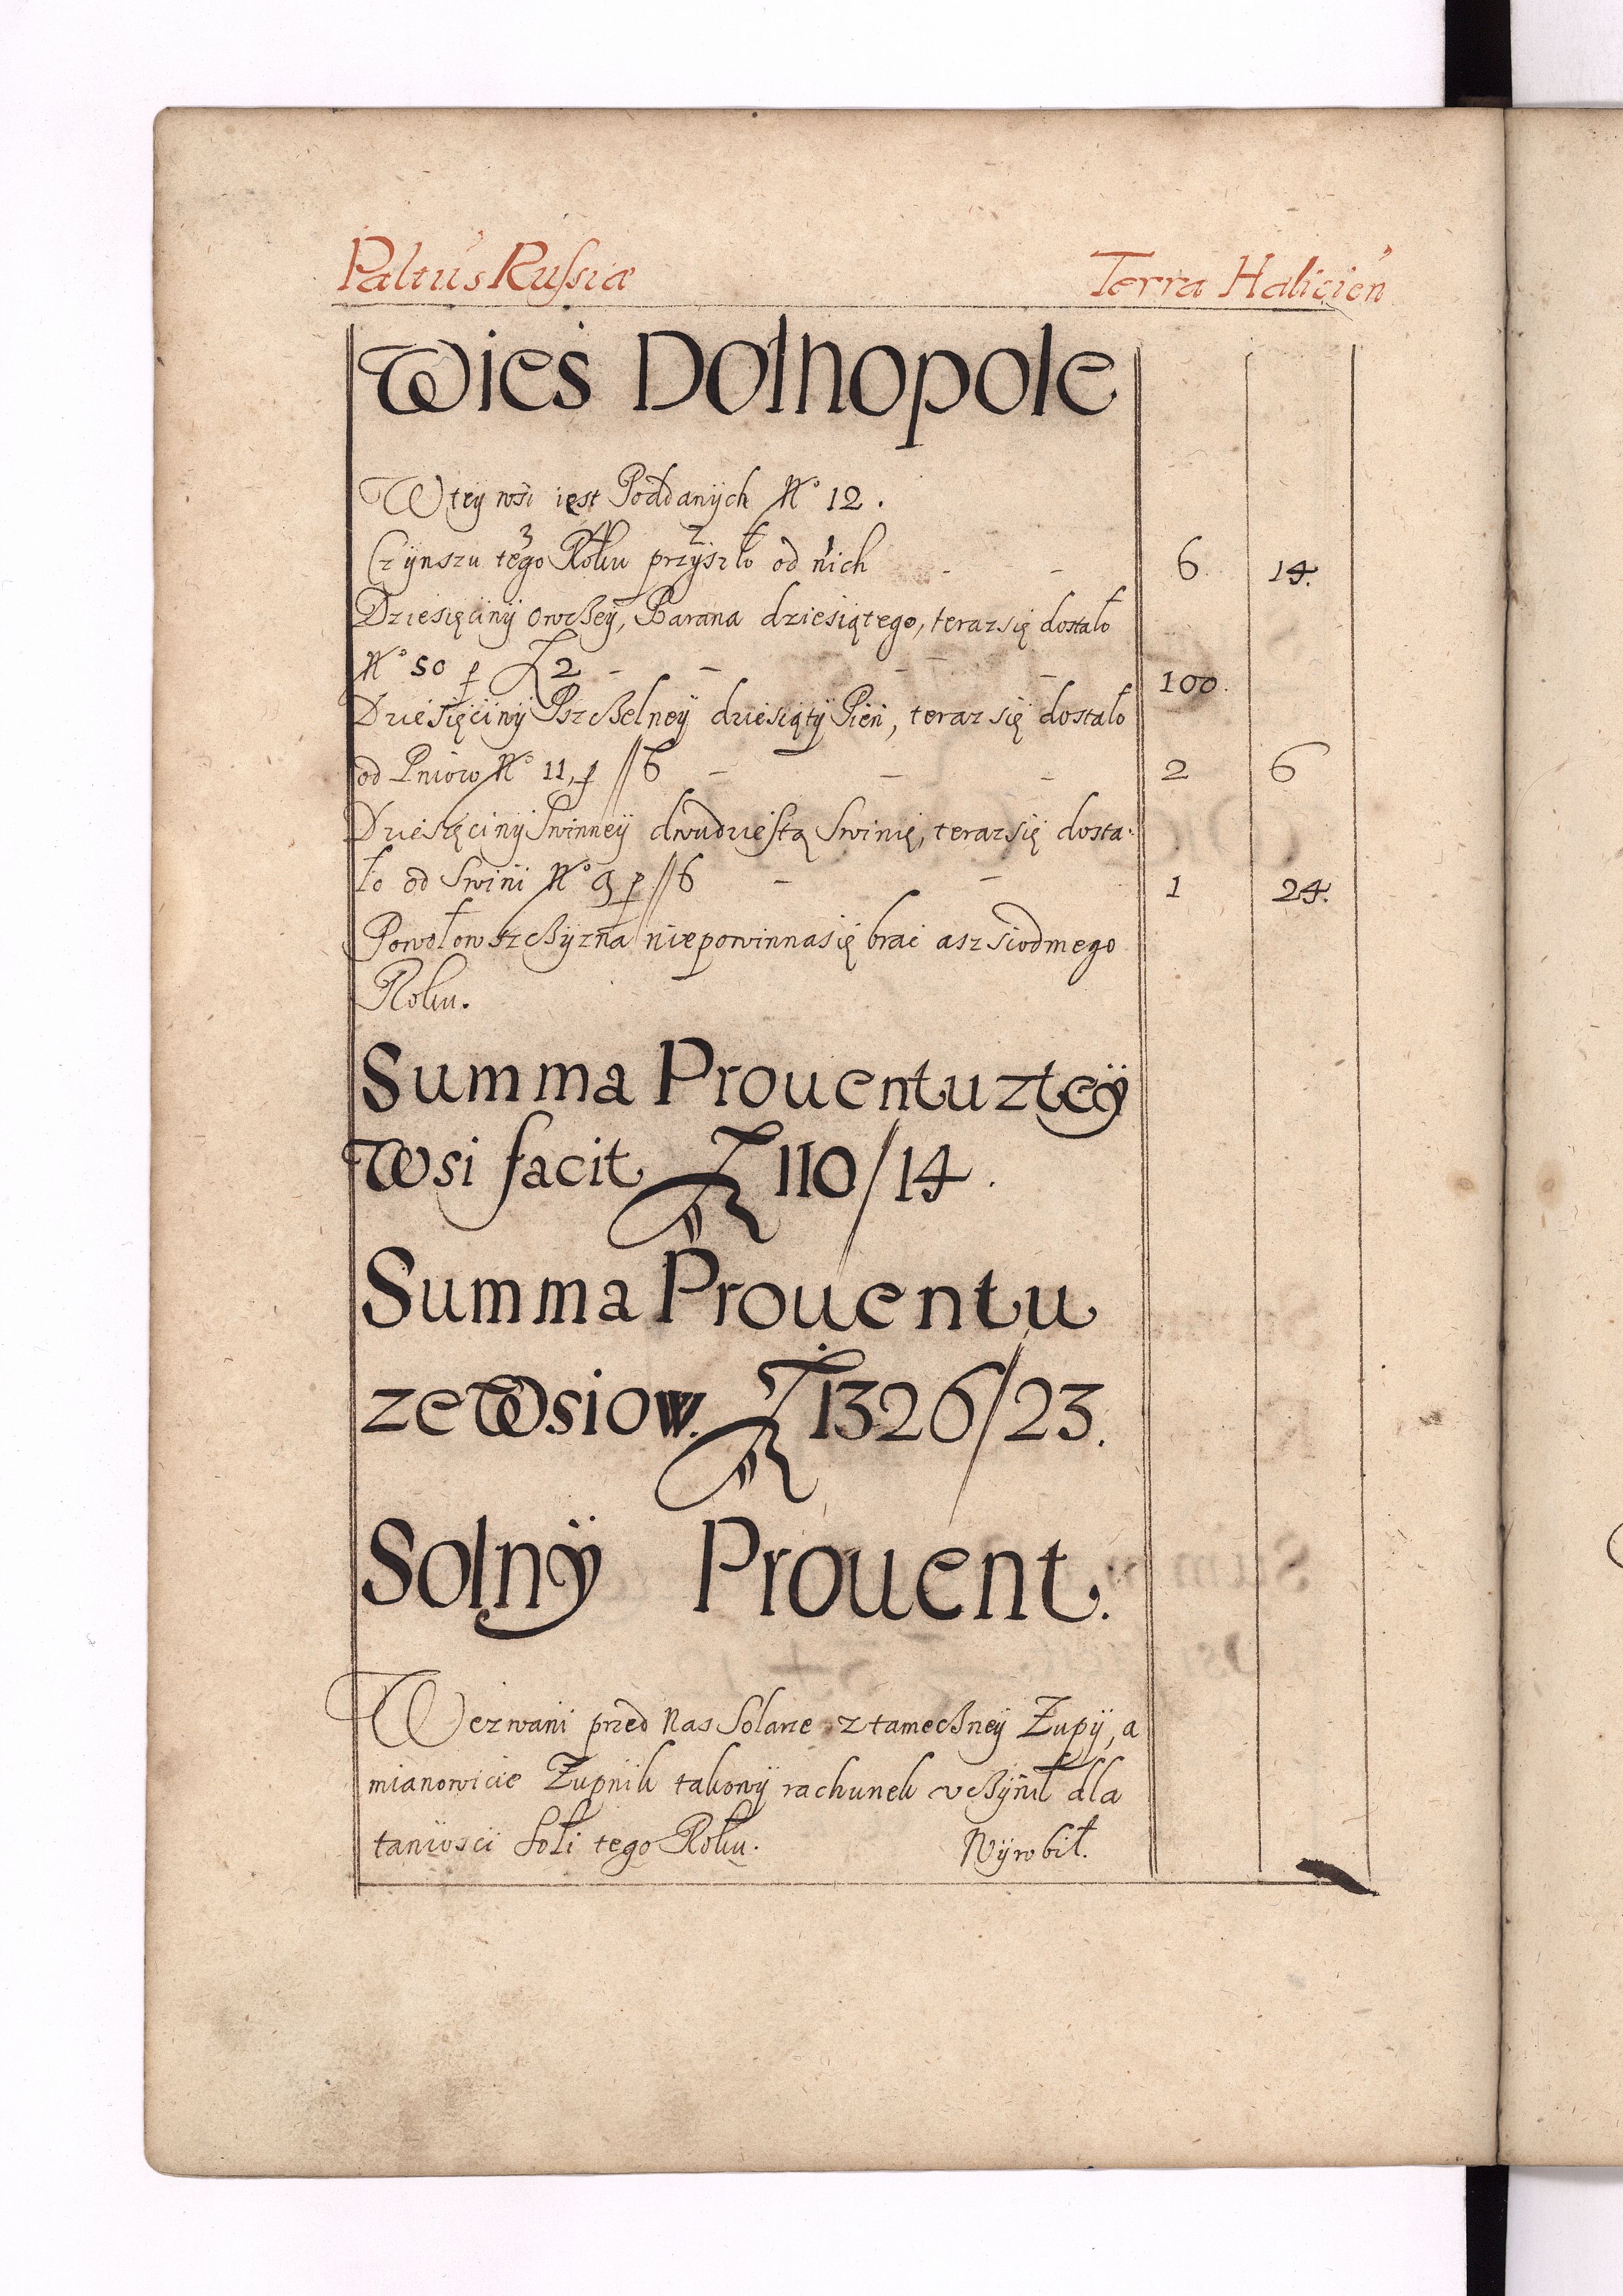 Paltus Russiæ Terra Halicień
Wieś Dolhopole
W tey wśi iest Poddanÿch N° 12.
Czÿnszu tego Roku przÿszło od nich - - 6 14.
3 4 2 1
Dziesięcinÿ owcßeÿ, Barana dziesiątego, teraz się dostało
N° 50 p Z 2 - - - - 100.
Dziesięcinÿ Pszcßelneÿ dziesiątÿ Pień, teraz się dostało
od Pniow N° 11, p // 6 - - - 2 6
Dziesięcinÿ Swinneÿ dwudziestą Swinię, teraz się dosta:
ło od Swini N° 9 p // 6 - - 1 24.
Powołowszcßÿzna niepowinna się brac asz siodmego
Roku.
Summa Prouentu z teÿ
Wsi facit Z 110/14.
Summa Prouentu
ze Wsiow. Z 1326/23.
Solnÿ Prouent.
Wezwani przed nas Solarze z tamecßneÿ Żupÿ, a
mianowicie Żupnik takowÿ rachunek vcßÿnił dla
taniosci Soli tego Roku. Wÿrobił.